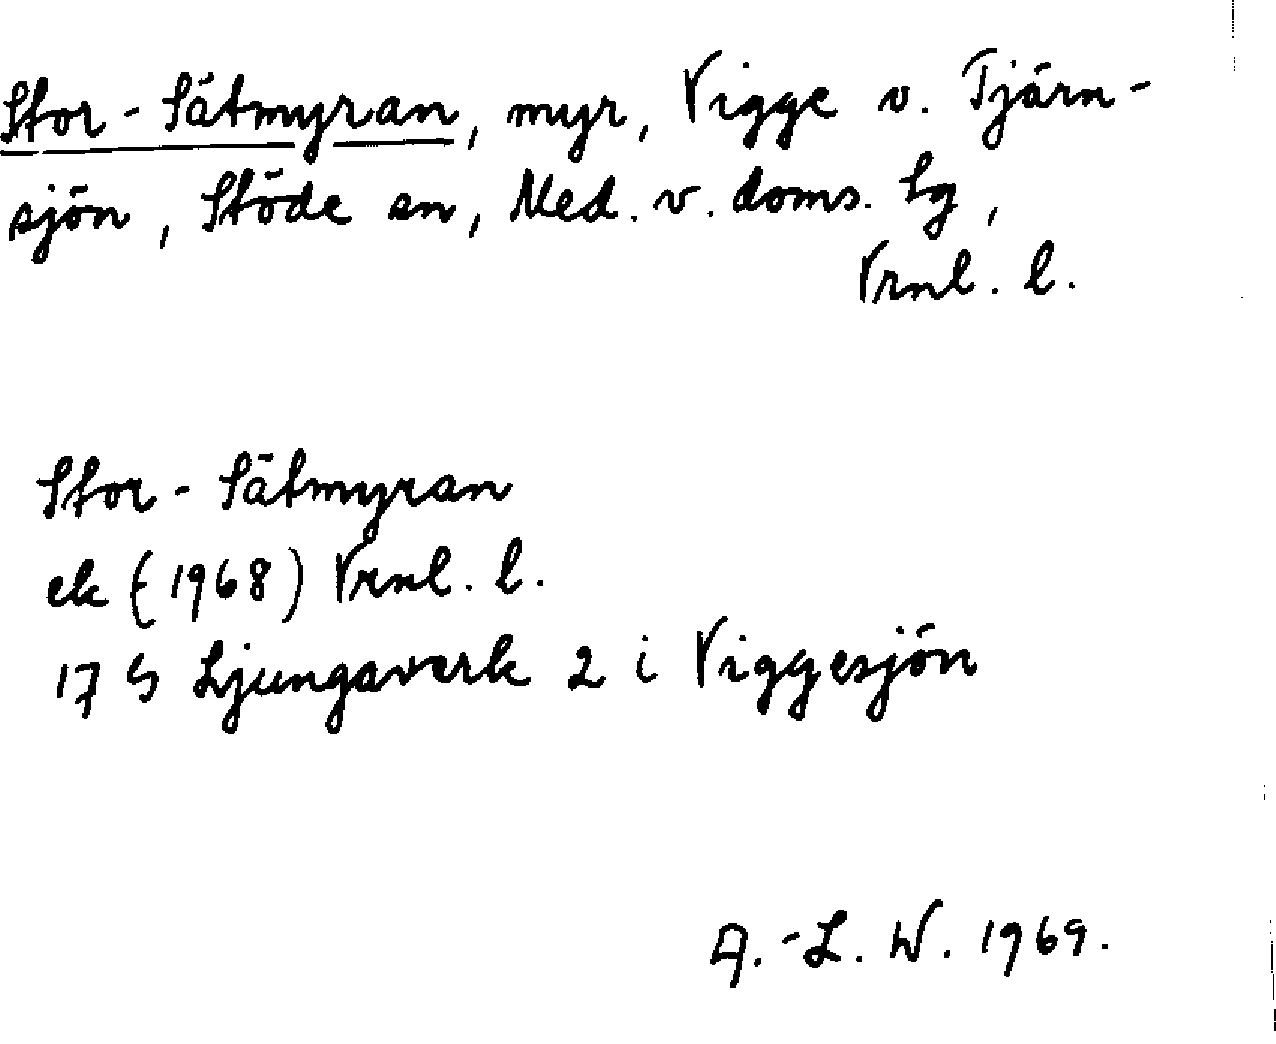 Stor-Sätmyran, myr, Vigge v. Tjärn-
sjön, Stöde sn, Med. v. doms. lg,
Vrnl. l.
Stor-Sätmyran
ek (1968) Vrnl. l.
17 G Ljungaverk 2 i Viggesjön
A.-L. W. 1969.